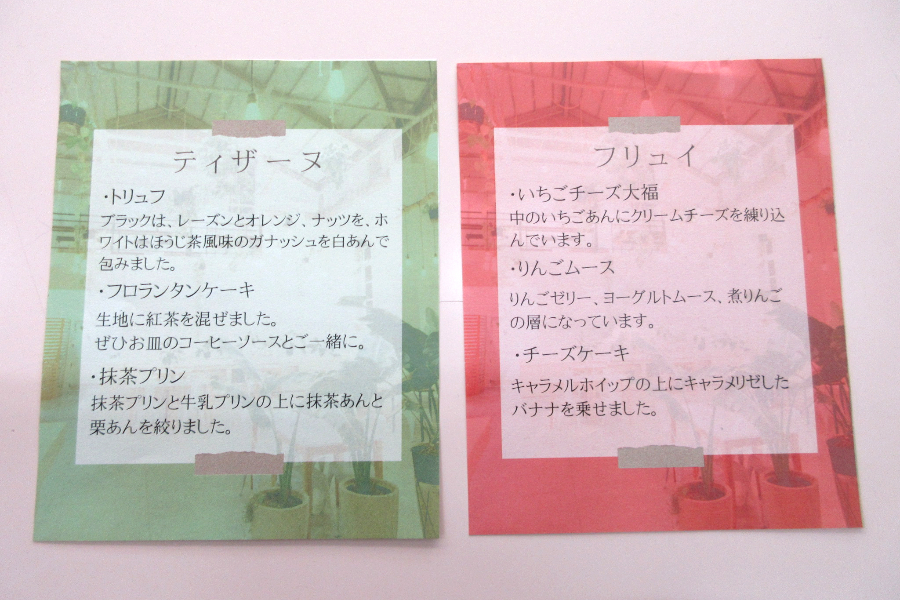 ティザーヌ
・トリュフ
ブラックは、レーズンとオレンジ、ナッツを、ホ
ワイトはほうじ茶風味のガナッシュを白あんで
包みました。
・フロランタンケーキ
生地に紅茶を混ぜました。
ぜひお皿のコーヒーソースとご一緒に。
・抹茶プリン
抹茶プリンと牛乳プリンの上に抹茶あんと
栗あんを絞りました。
フリュイ
・いちごチーズ大福
中のいちごあんにクリームチーズを練り込
んでいます。
・りんごムース
りんごゼリー、ヨーグルトムース、煮りんご
の層になっています。
・チーズケーキ
キャラメルホイップの上にキャラメリゼした
バナナを乗せました。